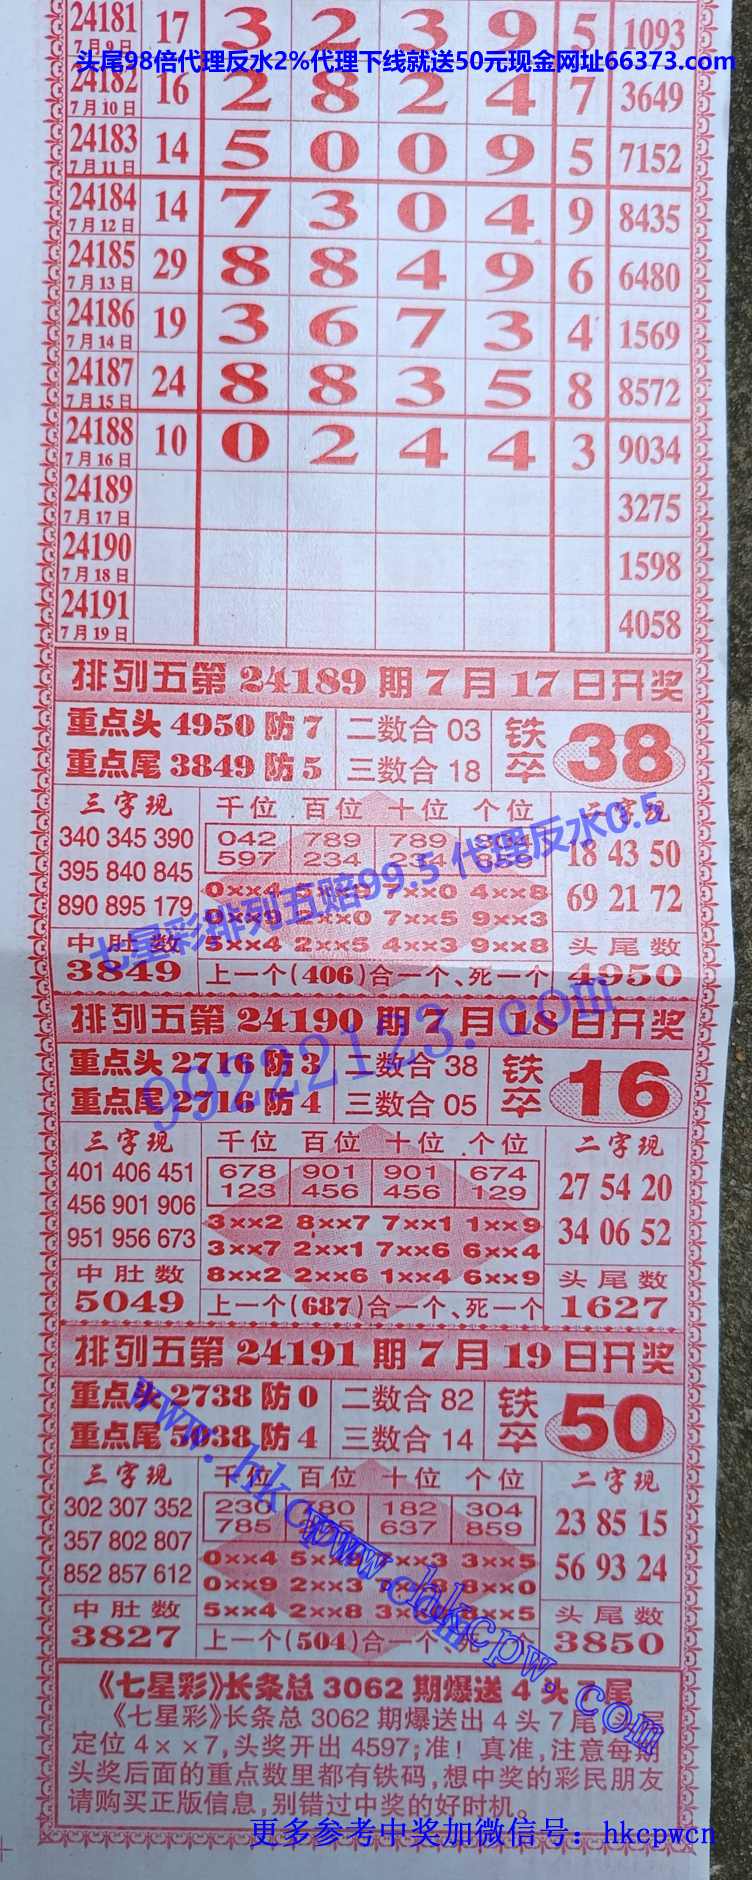 24181 17 3 2 3 9 5 1093
7月9日
头尾98倍代理反水2%代理下线就送50元现金网址66373.com
24182 16 2 8 2 4 7 3649
7月10日
24183 14 5 0 0 9 5 7152
7月11日
24184 14 7 3 0 4 9 8435
7月12日
24185 29 8 8 4 9 6 6480
7月13日
24186 19 3 6 7 3 4 1569
7月14日
24187 24 8 8 3 5 8 8572
7月15日
24188 10 0 2 4 4 3 9034
7月16日
24189 3275
7月17日
24190 1598
7月18日
24191 4058
7月19日
排列五第24189期7月17日开奖
重点头4950防7 二数合03 铁卒 38
重点尾3849防5 三数合18
三字现 千位 百位 十位 个位 二字现
340 345 390 042 789 789
395 840 845 597 234 234
18 43 50
890 895 179 0××4 7××0 4××8
69 21 72
0××9 7××5 9××3
七星彩排列五赔99.5 代理反水0.5
中肚数 5××4 2××5 4××3 9××8 头尾数
3849 上一个(406)合一个、死一个 4950
99222123.com
排列五第24190期7月18日开奖
重点头2716防3 二数合38 铁卒 16
重点尾2716防4 三数合05
三字现 千位 百位 十位 个位 二字现
401 406 451 678 901 901 674 27 54 20
456 901 906 123 456 456 129
951 956 673 3××2 8××7 7××1 1××9 34 06 52
3××7 2××1 7××6 6××4
中肚数 8××2 2××6 1××4 6××9 头尾数
5049 上一个(687)合一个、死一个 1627
排列五第24191期7月19日开奖
重点头2738防0 二数合82 铁卒 50
重点尾5038防4 三数合14
三字现 千位 百位 十位 个位 二字现
302 307 352 230 182 304 23 85 15
357 802 807 785 637 859
852 857 612 0××4 3××5 56 93 24
0××9 2××3 8××0
中肚数 5××4 2××8 头尾数
3827 上一个(504)合一个、死一个 3850
www.hkcpw.com
www.hkcpw.com
《七星彩》长条总3062期爆送4头7尾
《七星彩》长条总3062期爆送出4头7尾头尾
定位4××7,头奖开出4597;准！真准,注意每期
头奖后面的重点数里都有铁码,想中奖的彩民朋友
请购买正版信息,别错过中奖的好时机。
更多参考中奖加微信号：hkcpwcn